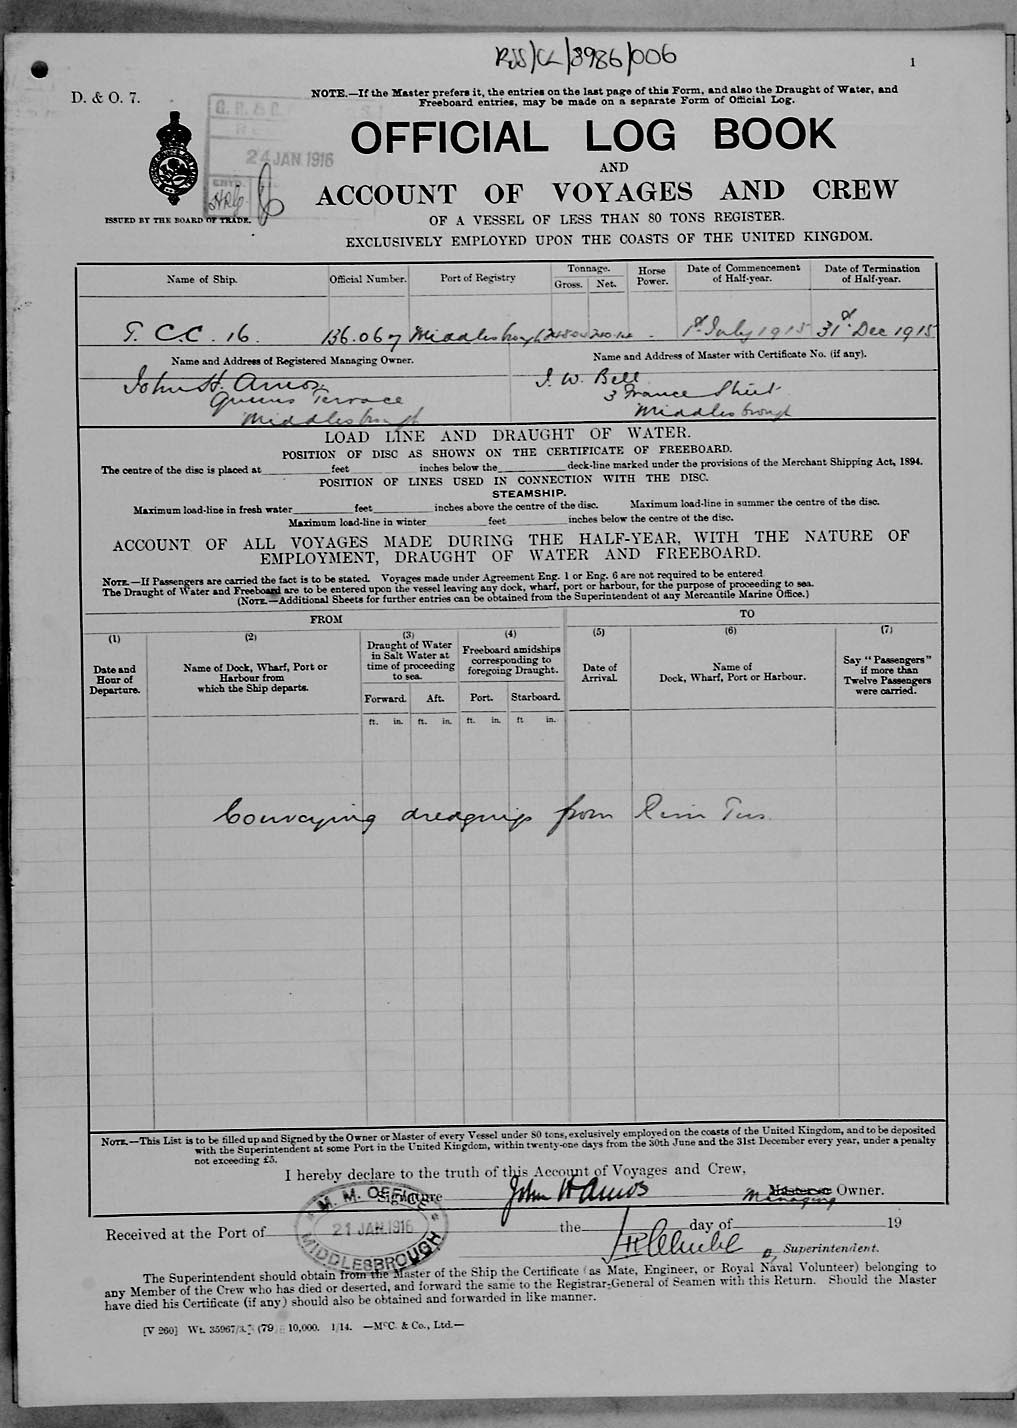 RSS/CL/3986/006
1
D. & O. 7.
NOTE.—If the Master prefers it, the entries on the last page of this Form, and also the Draught of Water, and
Freeboard entries, may be made on a separate Form of Official Log.
24 JAN 1916
ISSUED BY THE BOARD OF TRADE.
OFFICIAL LOG BOOK
AND
ACCOUNT OF VOYAGES AND CREW
OF A VESSEL OF LESS THAN 80 TONS REGISTER.
EXCLUSIVELY EMPLOYED UPON THE COASTS OF THE UNITED KINGDOM.
Name of Ship. Official Number. Port of Registry Tonnage. Gross. Net. Horse Power. Date of Commencement of Half-year. Date of Termination of Half-year.
T. C.C. 16. 136.067 Middlesbrough - 1st July 1915 31st Dec 1915
Name and Address of Registered Managing Owner. Name and Address of Master with Certificate No. (if any).
John H. Amos J. W. Bell
Queens Terrace 3 France Street
Middlesbrough Middlesbrough
LOAD LINE AND DRAUGHT OF WATER.
POSITION OF DISC AS SHOWN ON THE CERTIFICATE OF FREEBOARD.
The centre of the disc is placed at feet inches below the deck-line marked under the provisions of the Merchant Shipping Act, 1894.
POSITION OF LINES USED IN CONNECTION WITH THE DISC.
STEAMSHIP.
Maximum load-line in fresh water feet inches above the centre of the disc. Maximum load-line in summer the centre of the disc.
Maximum load-line in winter feet inches below the centre of the disc.
ACCOUNT OF ALL VOYAGES MADE DURING THE HALF-YEAR, WITH THE NATURE OF
EMPLOYMENT, DRAUGHT OF WATER AND FREEBOARD.
NOTE.—If Passengers are carried the fact is to be stated. Voyages made under Agreement Eng. 1 or Eng. 6 are not required to be entered
The Draught of Water and Freeboard are to be entered upon the vessel leaving any dock, wharf, port or harbour, for the purpose of proceeding to sea.
(NOTE.—Additional Sheets for further entries can be obtained from the Superintendent of any Mercantile Marine Office.)
FROM TO
(1) (2) (3) (4) (5) (6) (7)
Date and Hour of Departure. Name of Dock, Wharf, Port or Harbour from which the Ship departs. Draught of Water in Salt Water at time of proceeding to sea. Freeboard amidships corresponding to foregoing Draught. Date of Arrival. Name of Dock, Wharf, Port or Harbour. Say "Passengers" if more than Twelve Passengers were carried.
Forward. Aft. Port. Starboard.
ft. in. ft. in. ft. in. ft in.
Conveying dredgings from River Tees
NOTE.—This List is to be filled up and Signed by the Owner or Master of every Vessel under 80 tons, exclusively employed on the coasts of the United Kingdom, and to be deposited
with the Superintendent at some Port in the United Kingdom, within twenty-one days from the 30th June and the 31st December every year, under a penalty
not exceeding £5.
I hereby declare to the truth of this Account of Voyages and Crew,
Signature John H Amos Master or Managing Owner.
M. M. OFFICE
21 JAN. 1916
MIDDLESBROUGH
Received at the Port of the day of 19
Superintendent.
The Superintendent should obtain from the Master of the Ship the Certificate (as Mate, Engineer, or Royal Naval Volunteer) belonging to
any Member of the Crew who has died or deserted, and forward the same to the Registrar-General of Seamen with this Return. Should the Master
have died his Certificate (if any) should also be obtained and forwarded in like manner.
[V 260] Wt. 35967/3. (79) 10,000. 1/14. —McC. & Co., Ltd.—